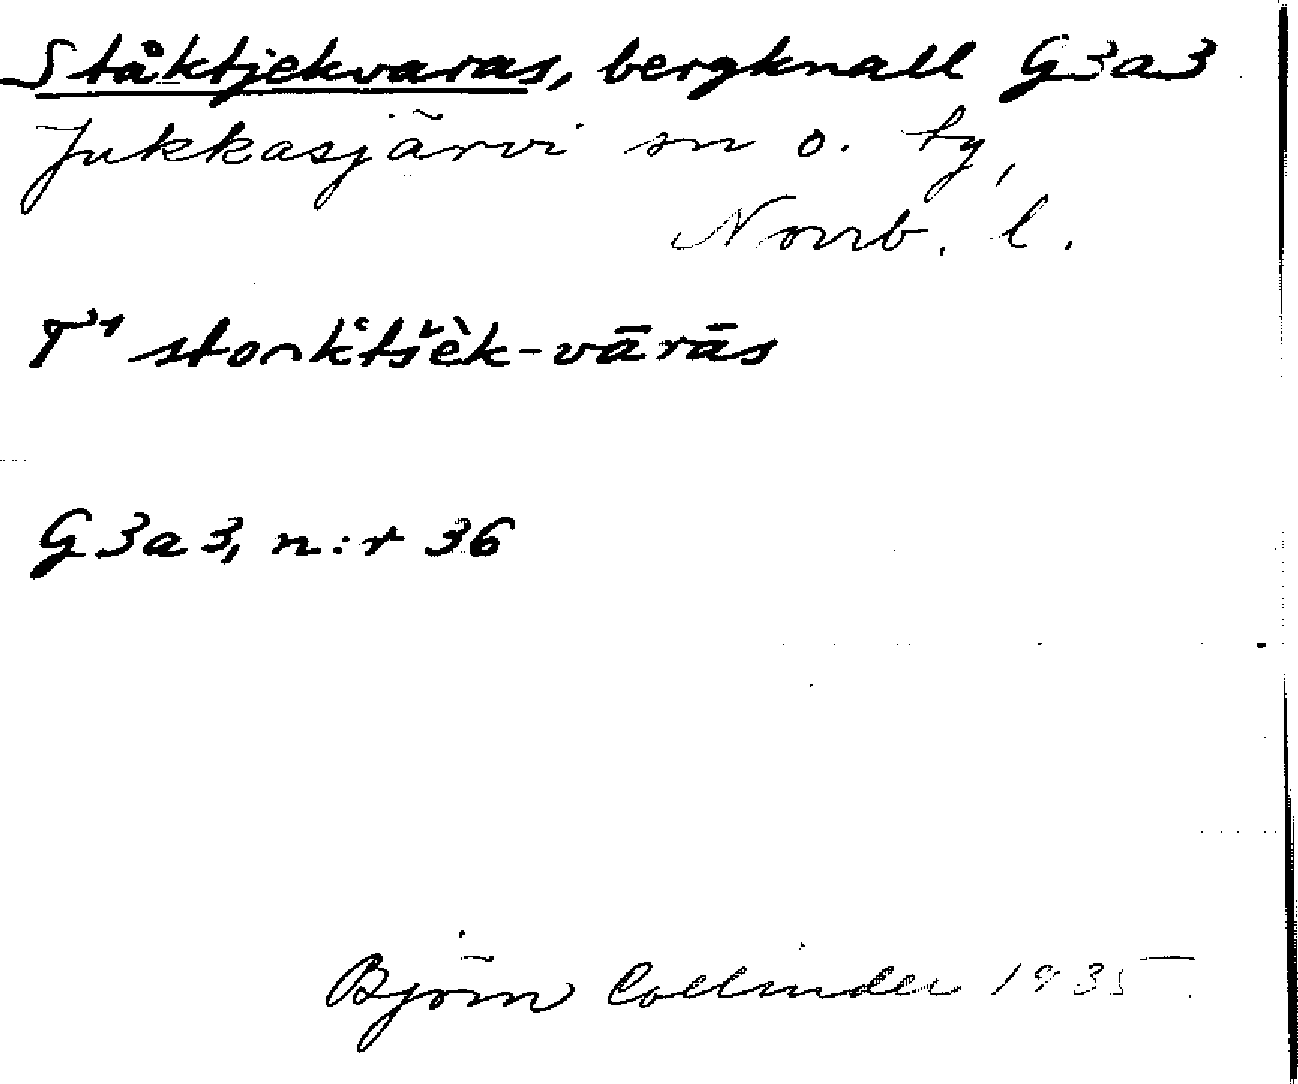 Ståktjekvaras, bergknall G3a3
Jukkasjärvi sn o. ty,
Norrb. l.
T¹ stoŋktšèk-vārās
G3a3, n:r 36
Björn Collinder 1935